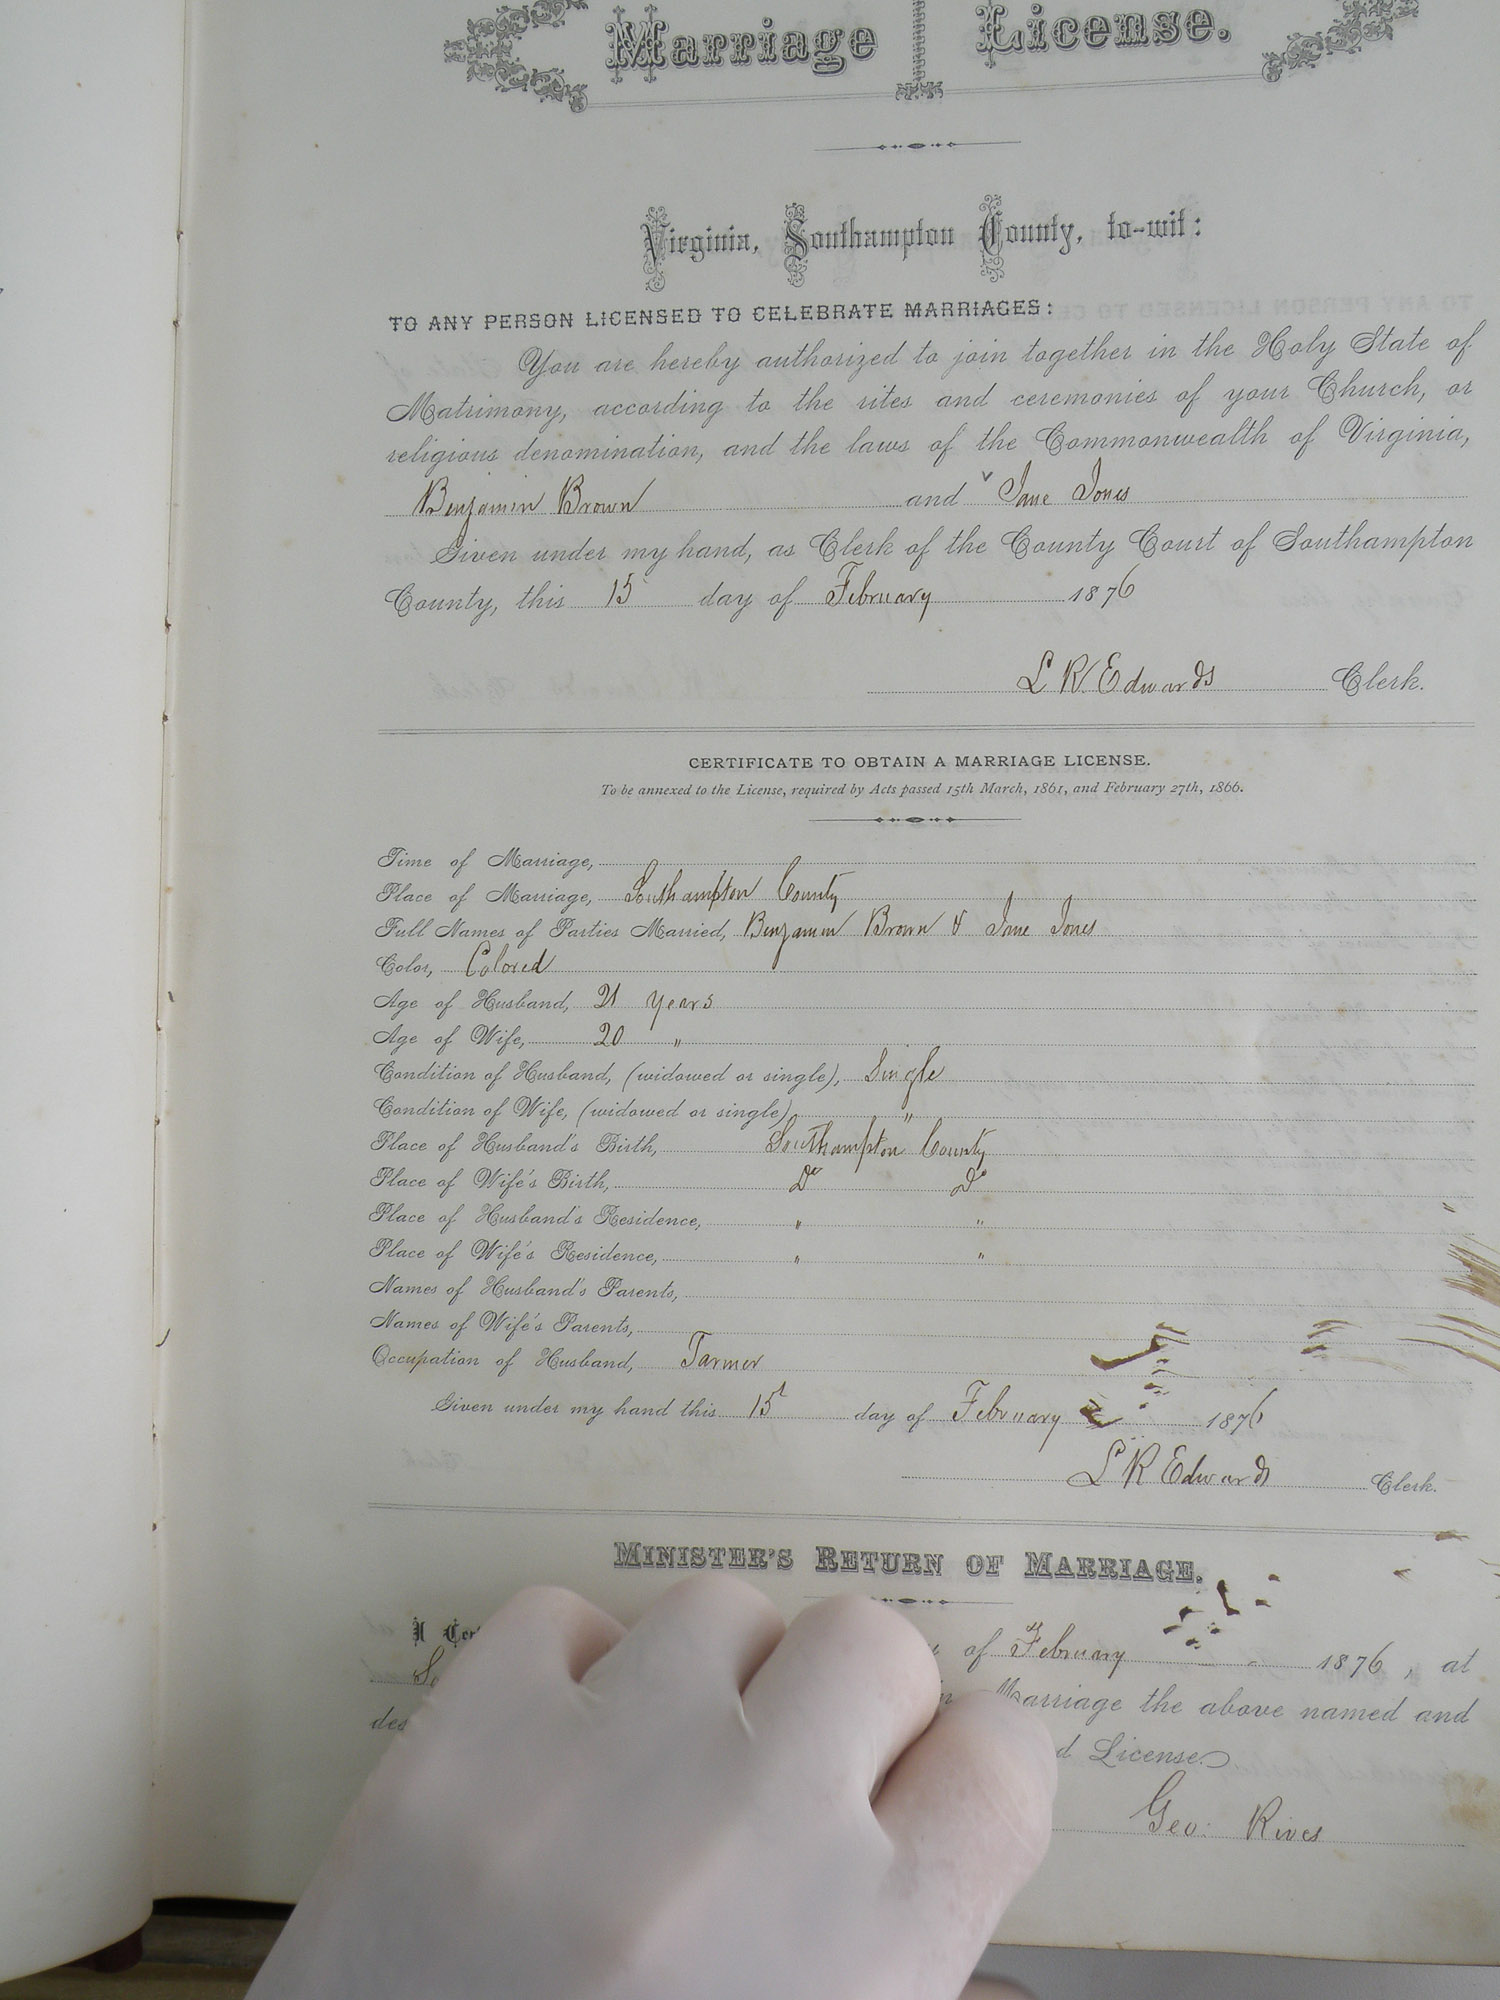 Marriage License.
Virginia, Southampton County, to-wit:
TO ANY PERSON LICENSED TO CELEBRATE MARRIAGES:
You are hereby authorized to join together in the Holy State of
Matrimony, according to the rites and ceremonies of your Church, or
religious denomination, and the laws of the Commonwealth of Virginia,
Benjamin Brown and Jane Jones
Given under my hand, as Clerk of the County Court of Southampton
County, this 15 day of February 1876
L R Edwards Clerk.
CERTIFICATE TO OBTAIN A MARRIAGE LICENSE.
To be annexed to the License, required by Acts passed 15th March, 1861, and February 27th, 1866.
Time of Marriage,
Place of Marriage, Southampton County
Full Names of Parties Married, Benjamin Brown & Jane Jones
Color, Colored
Age of Husband, 21 years
Age of Wife, 20 "
Condition of Husband, (widowed or single), Single
Condition of Wife, (widowed or single), "
Place of Husband's Birth, Southampton County
Place of Wife's Birth, Do Do
Place of Husband's Residence, " "
Place of Wife's Residence, " "
Names of Husband's Parents,
Names of Wife's Parents,
Occupation of Husband, Farmer
Given under my hand this 15t day of February 1876
L R Edwards Clerk.
MINISTER'S RETURN OF MARRIAGE.
I of February 1876, at
Marriage the above named and
License.
Geo. Rives